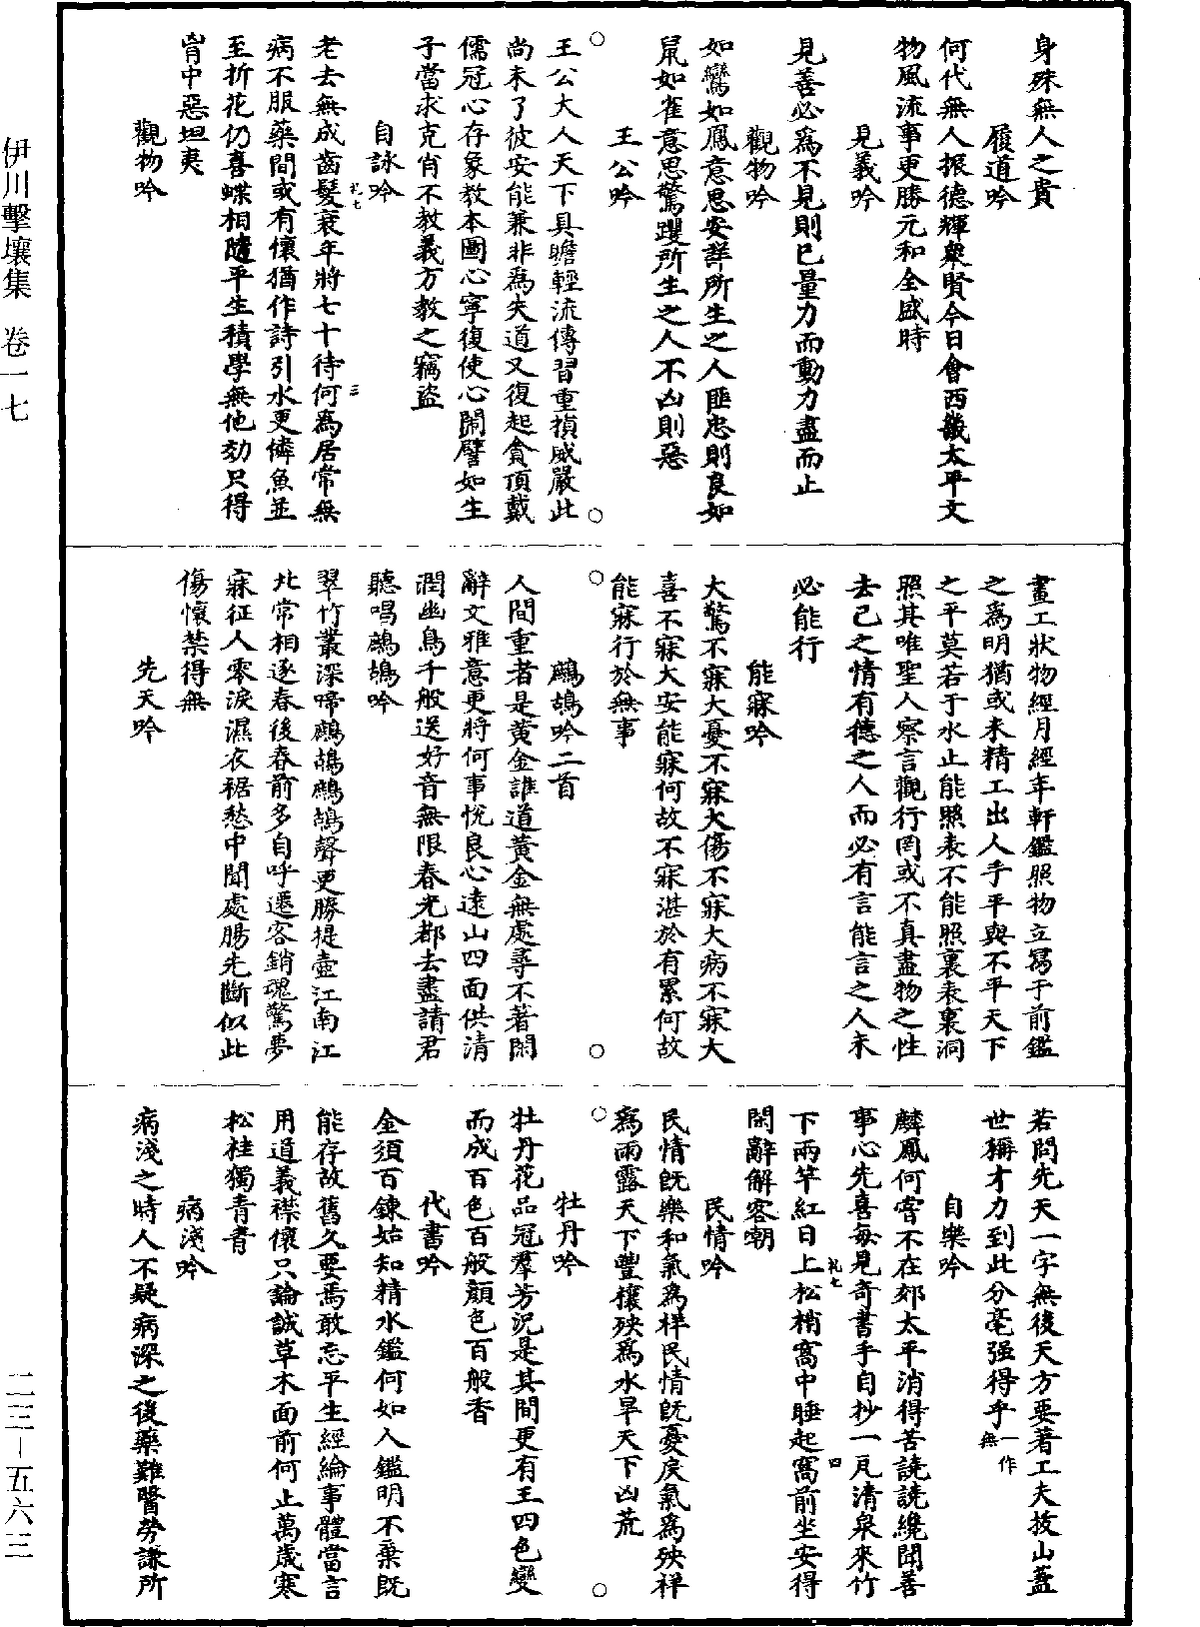 身殊無人之貴
履道吟
何代無人振德輝衆賢今日會西畿太平文
物風流事更勝元和全盛時
見義吟
見善必爲不見則已量力而動力盡而止
觀物吟
如鸞如鳳意思安詳所生之人匪忠則良如
鼠如雀意思驚躩所生之人不凶則惡
王公吟
王公大人天下具瞻輕流傳習重損威嚴此
尚未了彼安能兼非爲失道又復起貪頂戴
儒冠心存象教本圖心寧復使心閙譬如生
子當求克肖不教義方教之竊盜
自詠吟
老去無成齒髮衰年將七十待何爲居常無
病不服藥間或有懷猶作詩引水更憐魚並
至折花仍喜蝶相隨平生積學無他効只得
胷中惡坦夷
觀物吟
畫工狀物經月經年軒鑑照物立寫于前鑑
之爲明猶或未精工出人手平與不平天下
之平莫若于水止能照表不能照裏表裏洞
照其唯聖人察言觀行罔或不真盡物之性
去己之情有德之人而必有言能言之人未
必能行
能寐吟
大驚不寐大憂不寐大傷不寐大病不寐大
喜不寐大安能寐何故不寐湛於有累何故
能寐行於無事
鷓鴣吟二首
人間重者是黄金誰道黃金無處尋不著閑
辭文雅意更將何事悅良心逺山四面供清
潤幽鳥千般送好音無限春光都去盡請君
聽唱鷓鴣吟
翠竹叢深啼鷓鴣鷓鴣聲更勝提壺江南江
北常相逐春後春前多自呼遷客銷魂驚夢
寐征人零淚濕衣裾愁中聞處腸先斷似此
傷懷禁得無
先天吟
若問先天一字無後天方要著工夫拔山蓋
世稱才力到此分毫强得乎一作無
自樂吟
麟鳳何甞不在郊太平消得苦譊譊纔聞善
事心先喜每見奇書手自抄一瓦清泉來竹
下兩竿紅日上松梢窩中睡起窩前坐安得
閑辭解客嘲
民情吟
民情旣樂和氣爲祥民情旣憂戾氣爲殃祥
爲雨露天下豐穰殃爲水旱天下凶荒
牡丹吟
牡丹花品冠羣芳況是其間更有王四色變
而成百色百般顔色百般香
代書吟
金須百鍊姑知精水鑑何如人鑑明不棄旣
能存故舊久要焉敢忘平生經綸事體當言
用道義襟懷只論誠草木面前何止萬歲寒
松桂獨青青
病淺吟
病淺之時人不疑病深之後藥難醫勞謙所
礼七
三
礼七
四
伊川擊壤集 卷一七
二三-五六三